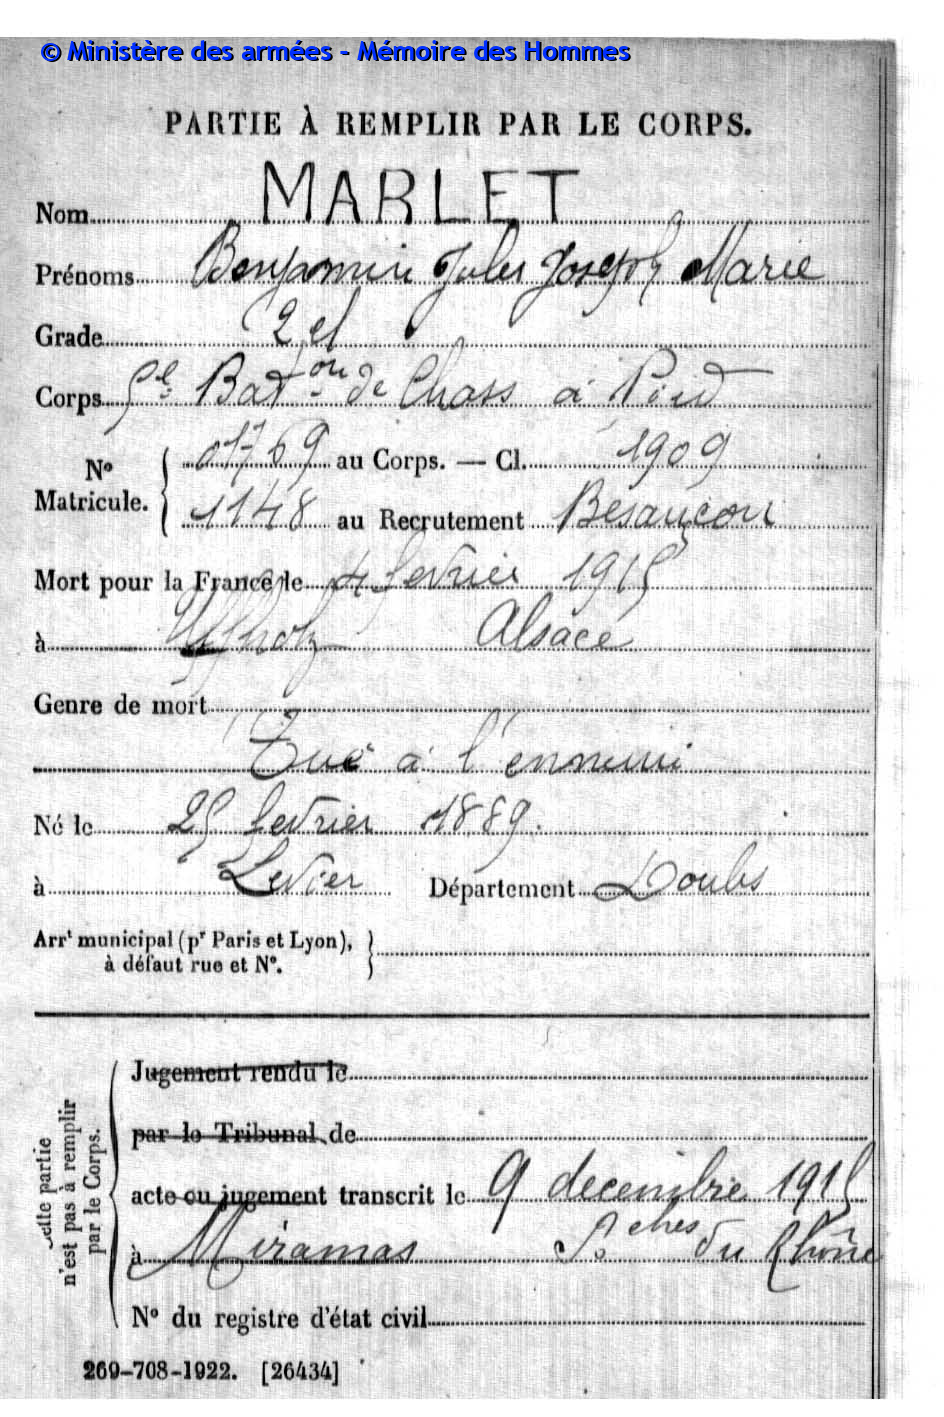 © Ministère des armées - Mémoire des Hommes
PARTIE À REMPLIR PAR LE CORPS.
Nom MARLET
Prénoms Benjamin Jules Joseph Marie
Grade 2 cl
Corps 5e Bat.on de Chass à Pied
No Matricule. 01769 au Corps. — Cl. 1909
1148 au Recrutement Besançon
Mort pour la France le 4 fevrier 1915
à Uffholz Alsace
Genre de mort
Tué à l'ennemi
Né le 25 fevrier 1889.
à Levier Département Doubs
Arrt municipal (pr Paris et Lyon),
à défaut rue et No.
Cette partie
n'est pas à remplir
par le Corps.
Jugement rendu le
par le Tribunal de
acte ou jugement transcrit le 9 decembre 1915
à Miramas Bches du Rhône
No du registre d'état civil
269-708-1922. [26434]